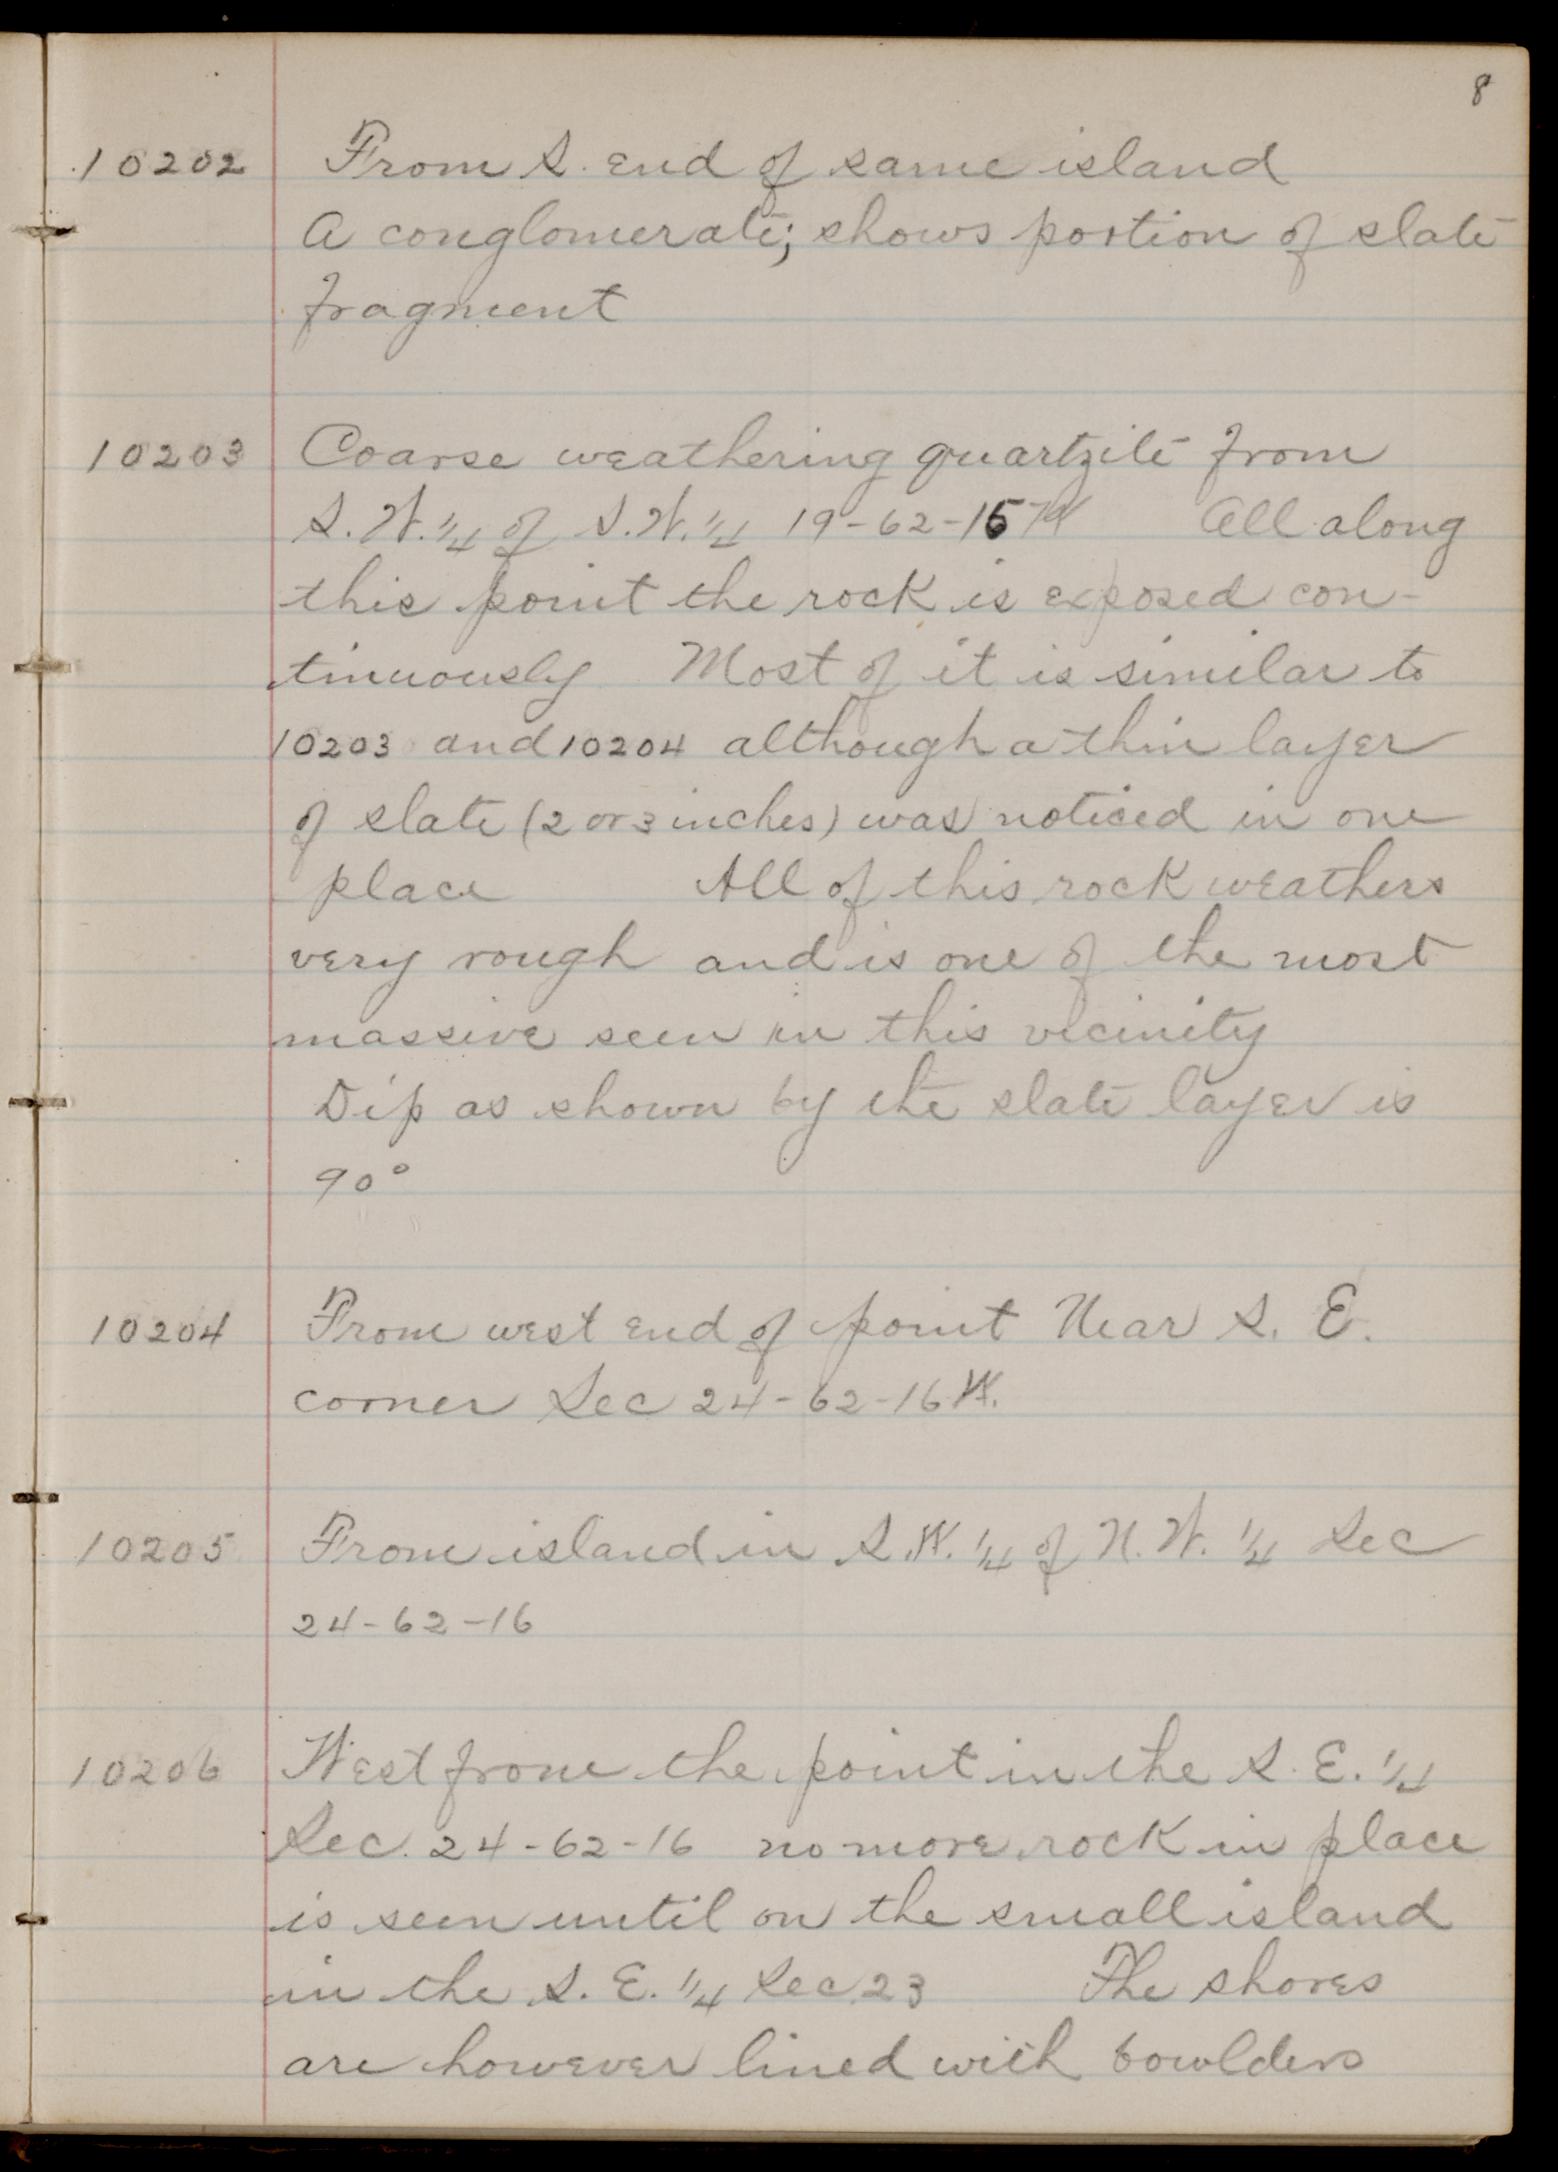 8
10202 From S. End of same island
A conglomerate; shows portion of slate
fragment
10203 Coarse weathering quartzite from
S.W. 1/4 of S.W. 1/4 19-62-15 W All along
this point the rock is exposed con-
tinuously Most of it is similar to
10203 and 10204 although a thin layer
of slate (2 or 3 inches) was noticed in one
place All of this rock weathers
very rough and is one of the most
massive seen in this vicinity
Dip as shown by the slate layer is
90°
10204 From west end of point Near S. E.
corner Sec 24-62-16 W.
10205 From island in S.W. 1/4 of N.W. 1/4 Sec
24-62-16
10206 West from the point in the S. E. 1/4
Sec. 24-62-16 no more rock in place
is seen until on the small island
in the S. E. 1/4 Sec. 23 The shores
are however lined with bowlders